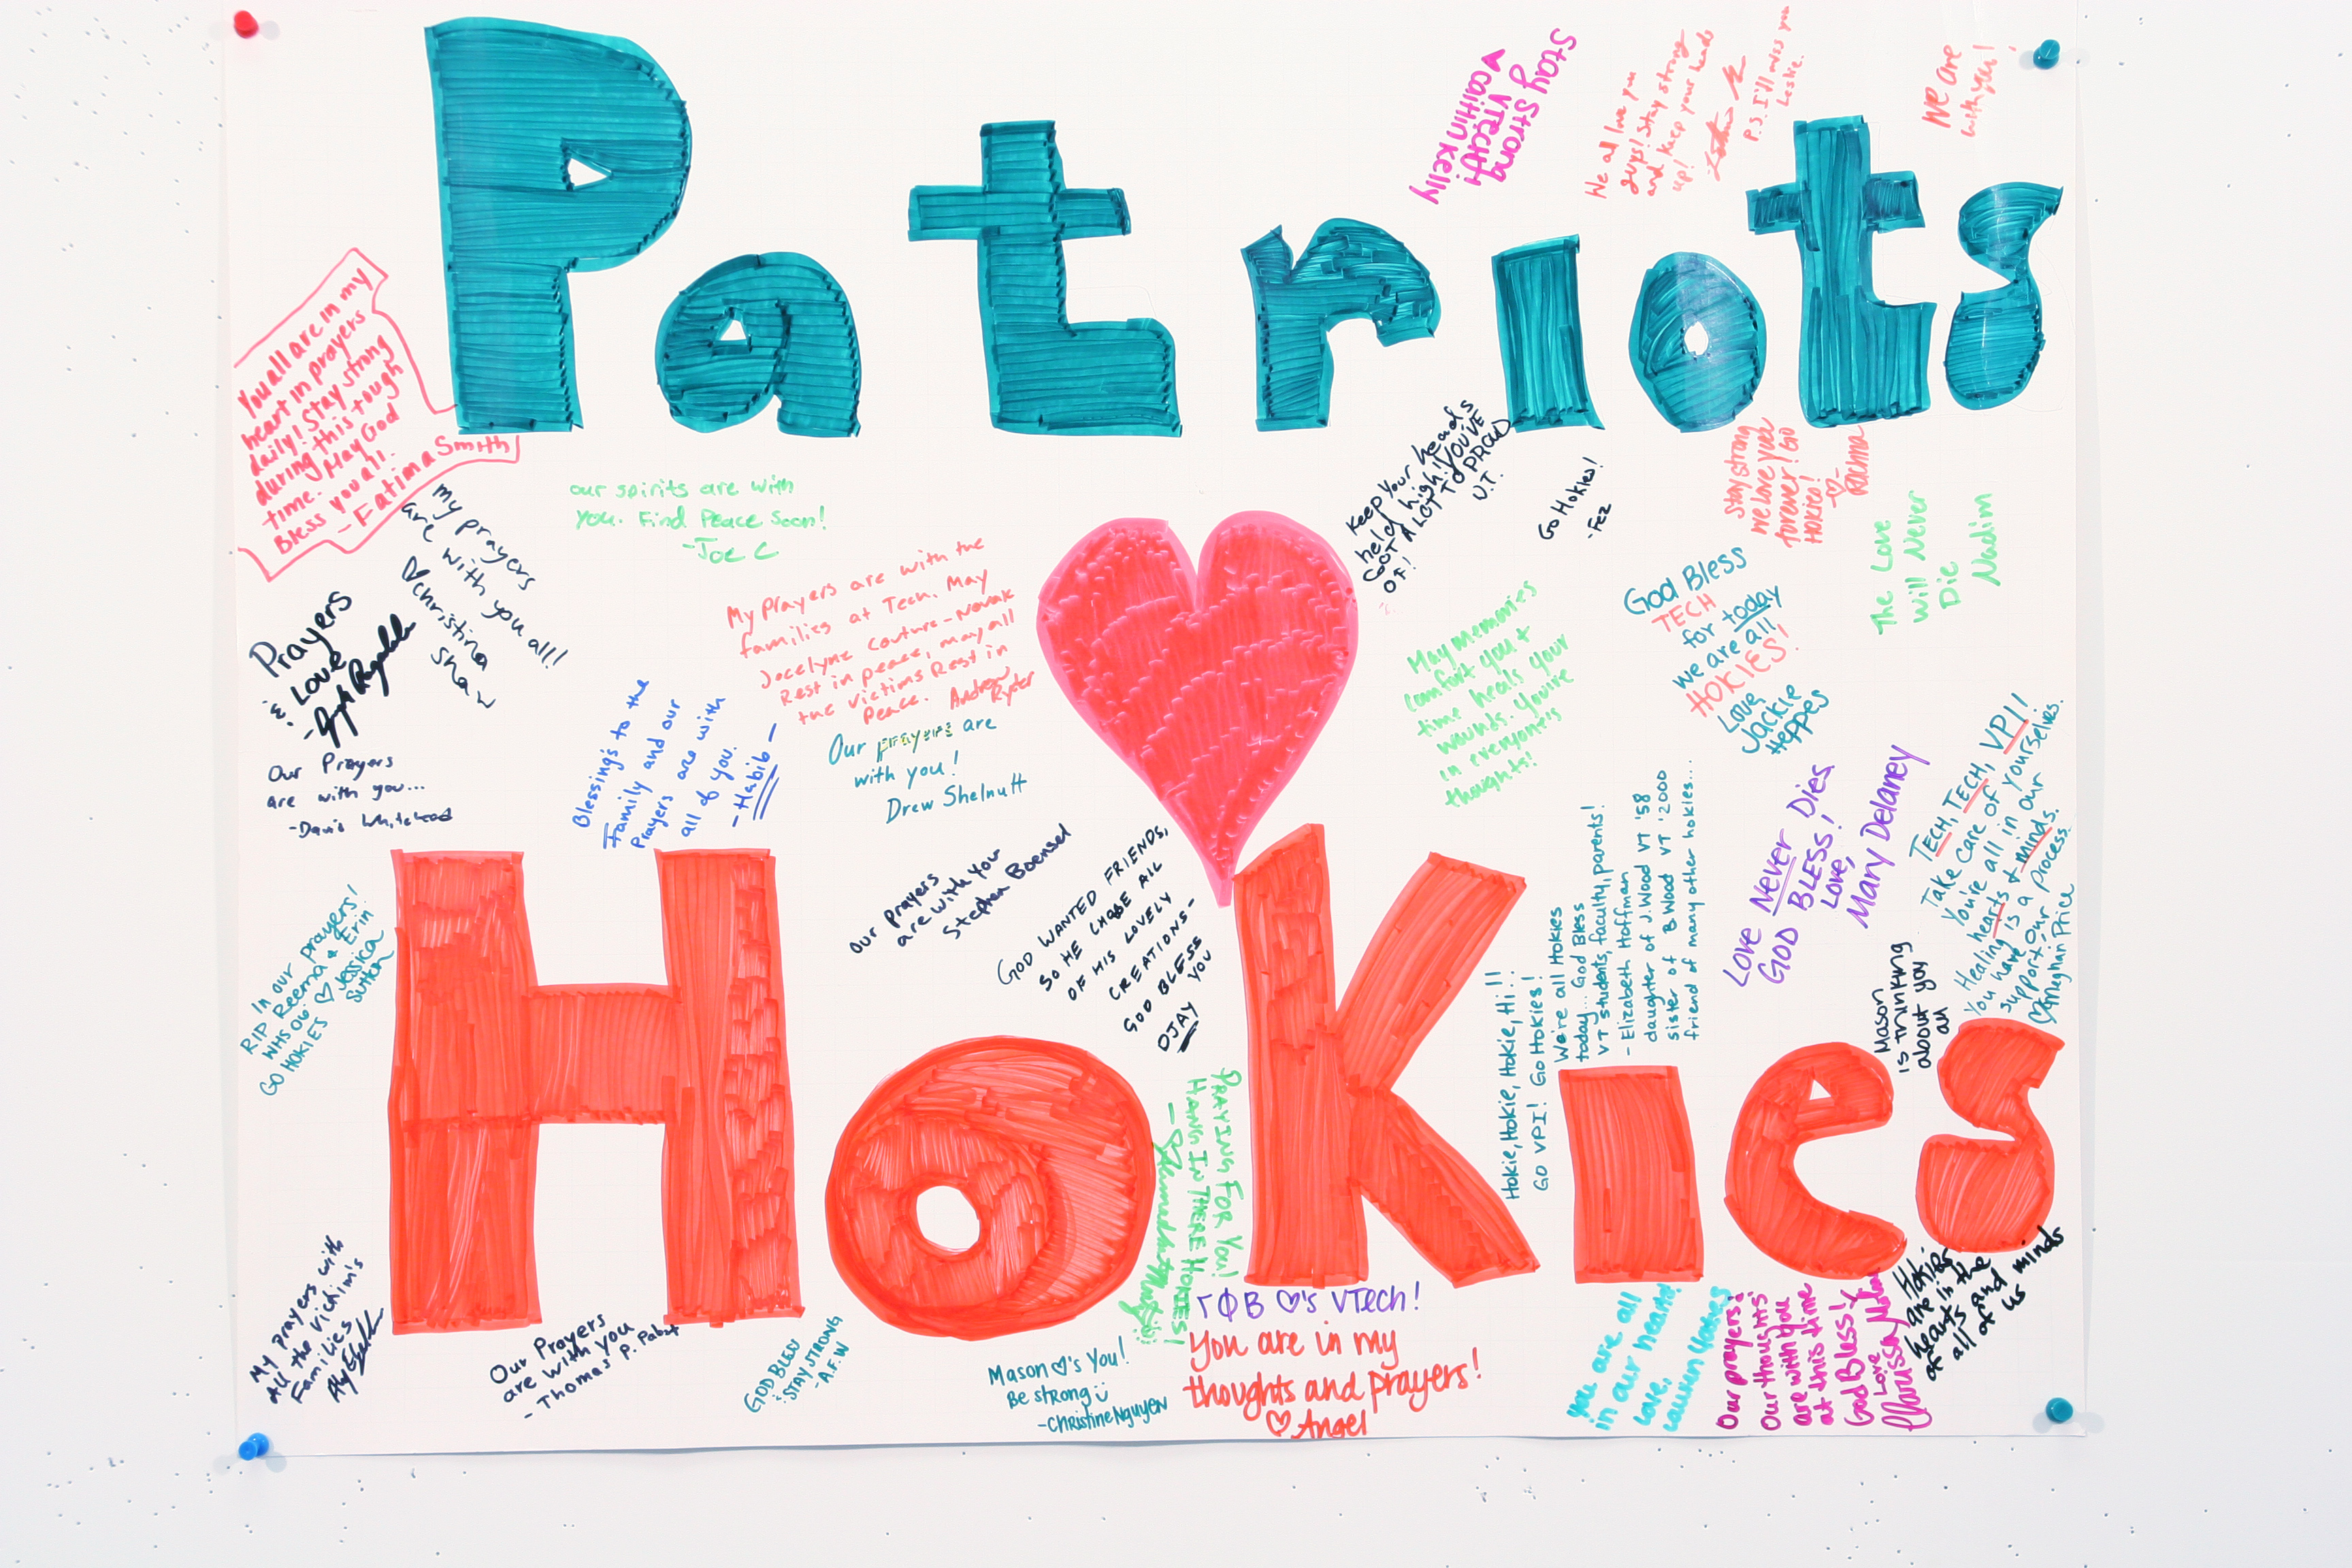 Patriots
Stay Strong
VTECH!
caitlin Kelly
We all love you
guys! Stay strong
and keep your heads
up!
P.S. I'll miss you
Leslie.
We are
with you!
You all are in my
heart in prayers
daily! Stay strong
during this tough
time. May God
Bless you all.
- Fatima Smith
My prayers
are with you all!
Christina
Shaw
our spirits are with
you. Find Peace Soon!
- Joe C
Keep Your heads
held high! YOU'VE
GOT A LOT To PROUD
OF!
U.T.
Go Hokies!
- Fez
Stay strong
we love you
forever! Go
Hokies!
The Love
Will Never
Die
Nadim
My Prayers are with the
families at Tech. May
Jocelyne Couture-Nowak
Rest in peace, may all
the victims Rest in
Peace. Andrew
Ryder
May memories
comfort you +
time heals your
wounds. You're
in everyone's
thoughts!
God Bless
TECH
for today
we are all
HOKIES!
Love,
Jackie
Heppes
Prayers
& Love
Our Prayers
are with you...
- Davis Whitehead
Blessings to the
Family and our
Prayers are with
all of you.
- Habib -
Our prayers are
with you!
Drew Shelnutt
TECH, TECH, VPI!
Take Care of Yourselves.
You're all in our
hearts & minds.
Healing is a Process.
You have our
support.
Meghan Price
Love Never Dies
GOD BLESS!
Love,
Mary Delaney
Our prayers
are with you
Stephen Boensel
GOD WANTED FRIENDS,
SO HE CHOSE ALL
OF HIS LOVELY
CREATIONS-
GOD BLESS
YOU
DJAY
Hokie, Hokie, Hokie, Hi!!
GO VPI! Go Hokies!
We're all Hokies
today... God Bless
VT students, faculty, parents!
- Elizabeth Hoffman
daughter of J.Wood VT '58
sister of B Wood VT '2000
friend of many other hokies...
In our prayers!
RIP Reema & Erin
WHS 06 ♡ Jessica
GO HOKIES Sutton
Mason
is thinking
about you
all
HoKies
PRAYING FOR YOU!
HANG IN THERE HOKIES!
My prayers with
All the victim's
Families
Our Prayers
are with you
- Thomas P. Pabst
GOD BLESS
STAY STRONG
- A.F.W
Mason ♡'s You!
Be strong
- Christine Nguyen
ΓΦΒ ♡'s VTech!
You are in my
thoughts and prayers!
♡ Angel
you are all
in our hearts
Love,
Lauren
Our prayers!
Our thoughts
are with you
at this time
God Bless!
Love
Marissa
Hokies
are in the
hearts and minds
of all of us